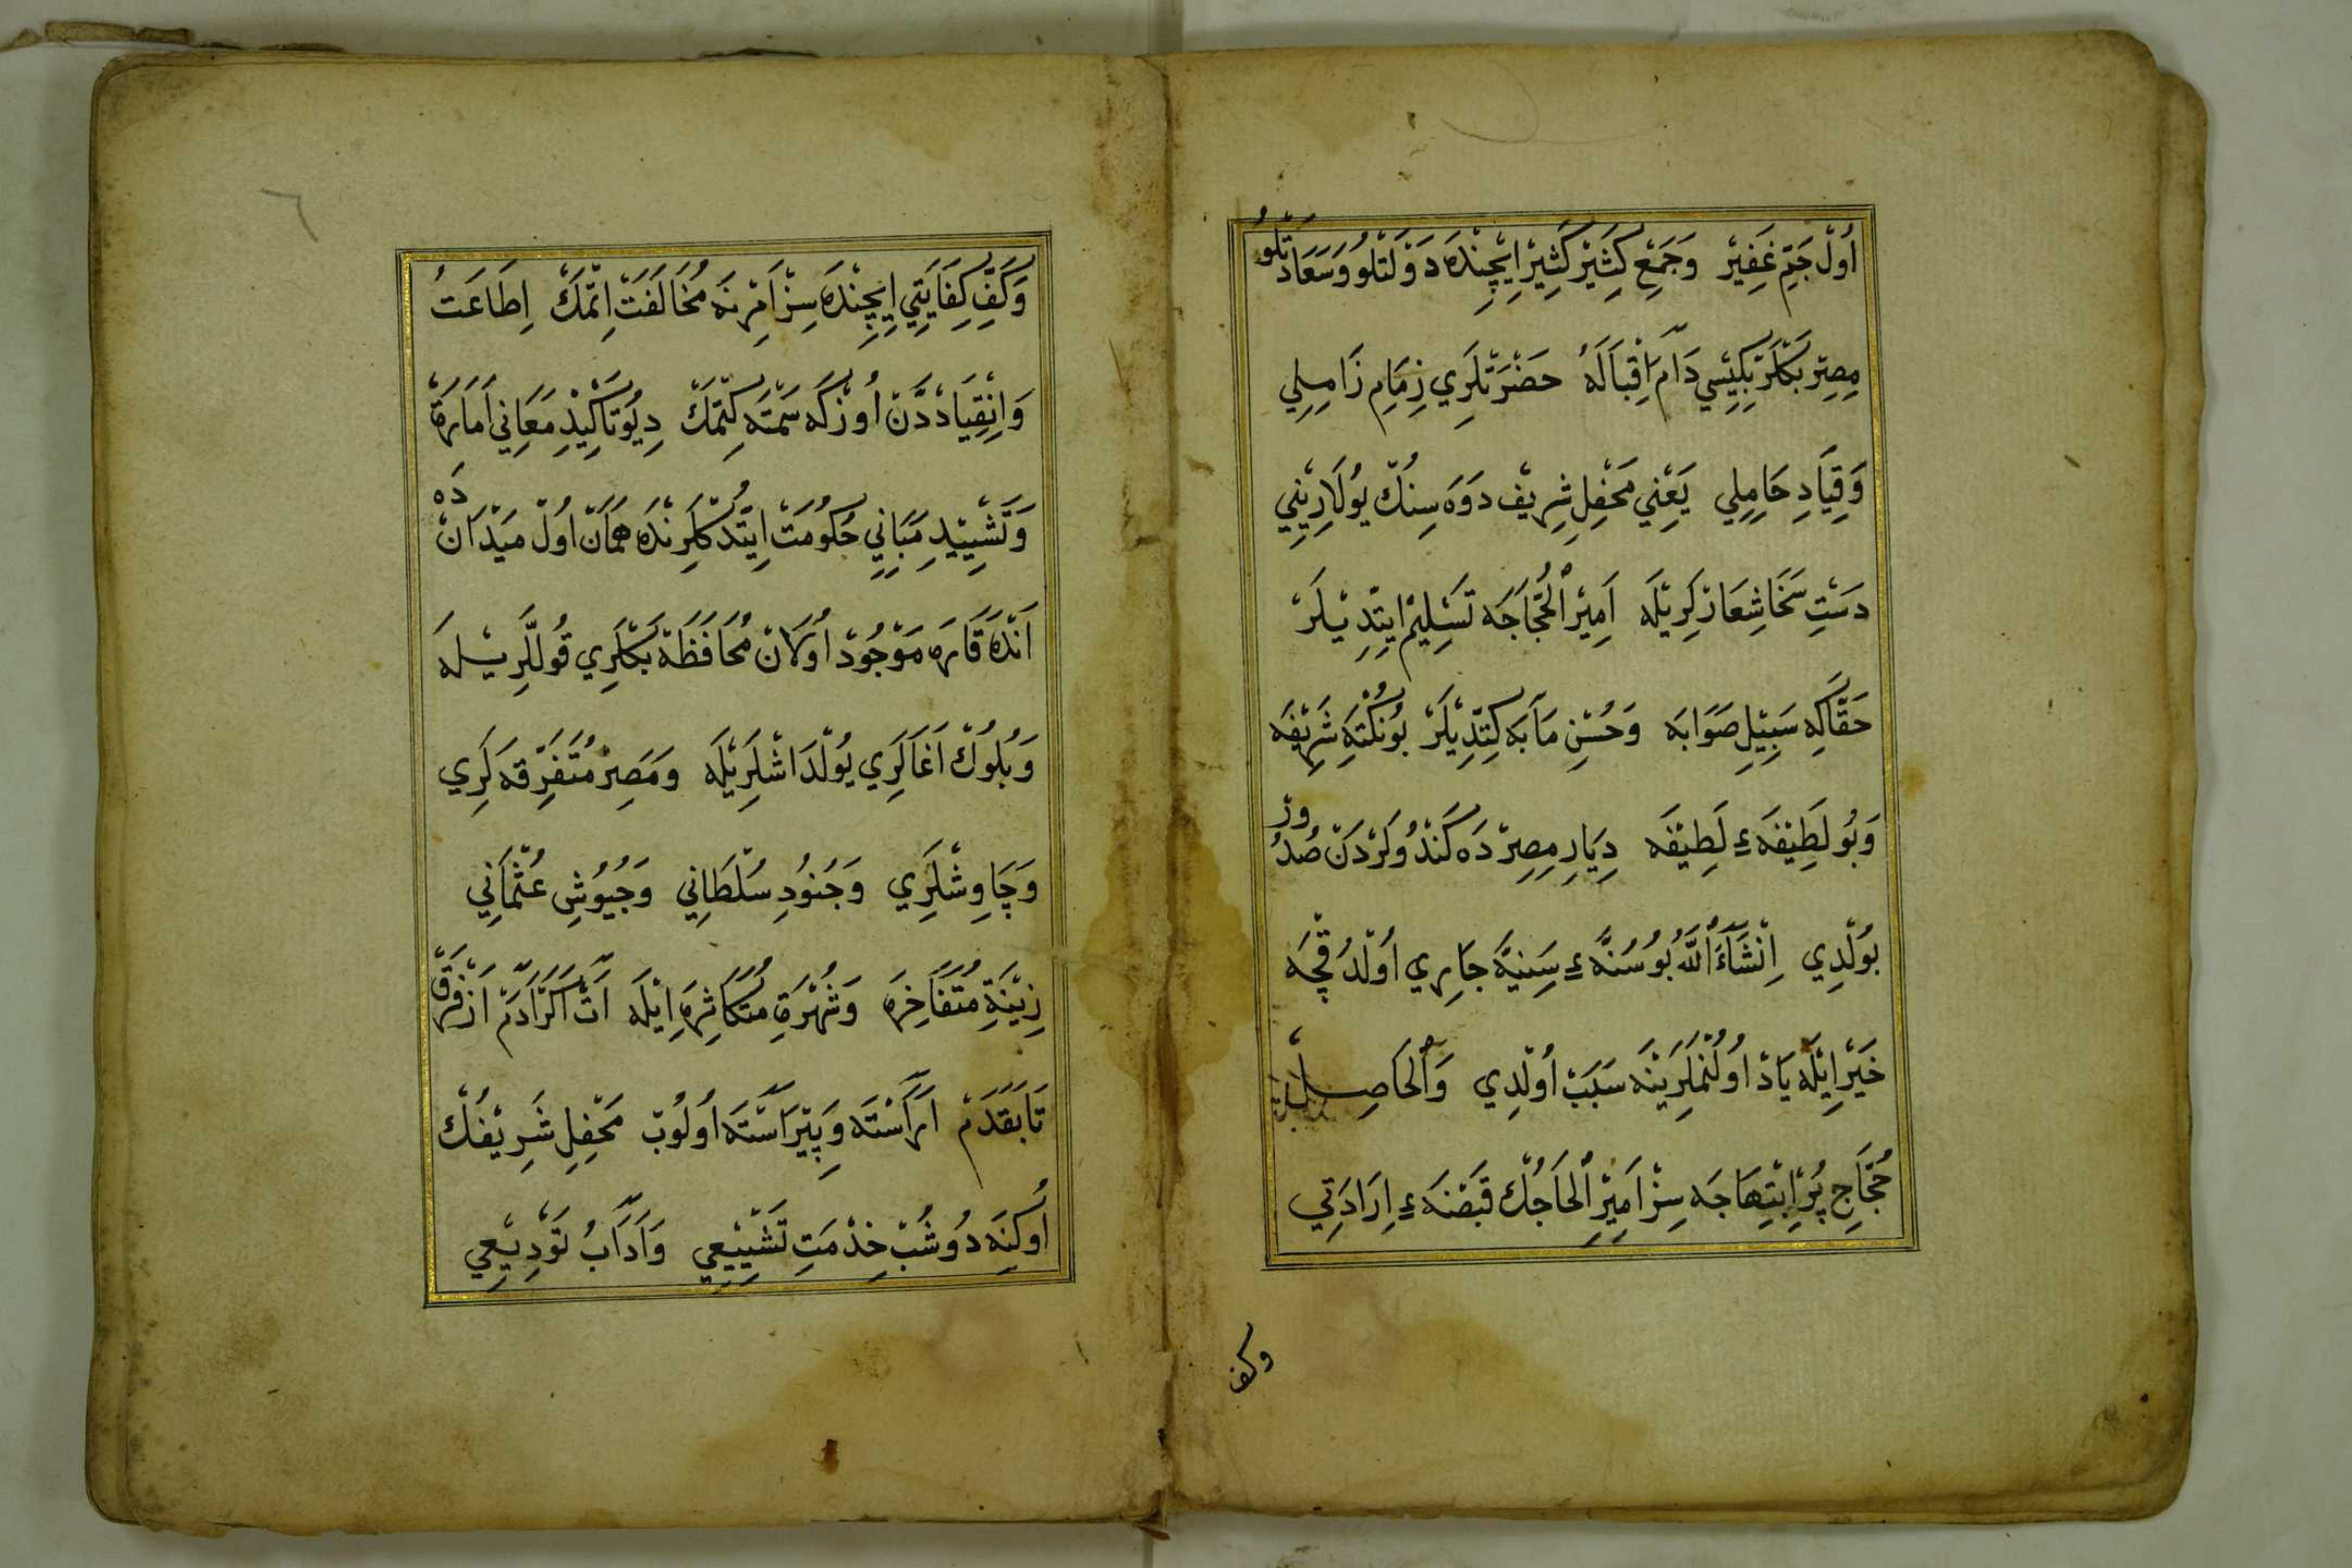 اُولْ جَمِّ غَفِيْرْ وَجَمْعِ كَثِيْرْ كَثِيْرْ اِيْچِنْدَه دَوْلَتْلُو وَسَعَادَتْلُو
مِصِرْ بَكْلَرْبَكِيْسِي دَامَ اِقْبَالَهُ حَضْرَتْلَرِي زِمَامِ زَامِلِي
وَقِيَادِ حَامِلِي يَعْنِي مَحْفِلِ شِرِيْف دَوَه سِنُكْ يُولَارِيْنِي
دَسْتِ سَخَاشِعَارْلَرِيْلَه اَمِيْرُ الْحُجَّاجَه تَسْلِيْم اِيْتِدِيْلَرْ
حَقَّاكِه سَبِيْلِ صَوَابَه وَحُسْنِ مَآبَه كِتِدِيْلَرْ بُو نُكْتَهِ شَرِيْفَه
وَبُو لَطِيْفَهءِ لَطِيْفَه دِيَارِ مِصِرْدَه كَنْدُولَرْدَنْ صُدُورْ
بُولْدِي اِنْشَآءَ اللّٰه بُو سُنَّهءِ سَنِيَّه جَارِي اُولْدُقْچَه
خَيْرْ اِيْلَه يَادْ اُولُنْمَلَرِيْنَه سَبَبْ اُولْدِي وَالْحَاصِلْ
حُجَّاجِ پُرْ اِبْتِهَاجَه سِزْ اَمِيْرِ الْحَاجُكْ قَبْضَهءِ اِرَادَتِي
وكف
وَكَفِّ كِفَايَتِي اِيچِنْدَه سِزْ اَمْرِنَه مُخَالَفَتْ اِتْمَكْ اِطَاعَتْ
وَاِنْقِيَادْدَنْ اُوزْكَه سَمْتَه كِتْمَكْ دِيُو تَاكِيْدِ مَعَانِي اَمَارَةْ
وَتَشْيِيْدِ مَبَانِي حُكُومَتْ اِيْتْدُكْلَرِنْدَه هَمَانْ اُولْ مَيْدَانْدَه
اَنْدَه قَارَه مَوْجُودْ اُولَانْ مُحَافَظَه بَكْلَرِي قُوللَّرِيْلَه
وَبُلُوكْ اَغَالَرِي يُولْدَاشْلَرِيْلَه وَمَصِرْ مُتَفَرِّقَه لَرِي
وَچَاوِشْلَرِي وَجُنُودِ سُلْطَانِي وَجُيُوشِ عُثْمَانِي
زِيْنَةِ مُتَفَاخِرَه وَشُهْرَةِ مُتَكَاثِرَه اِيْلَه اَتْ اَكَرْ اَدَمْ اَزْ فَرْقْ
تَابَقَدَمْ اَرَاسْتَه وَپِيْرَاسْتَه اُولُوبْ مَحْفِلِ شَرِيْفُكْ
اُوكِنَه دُوشُبْ خِذْمَتِ تَشْيِيْعِي وَاَدَابُ تَوْدِيْعِي